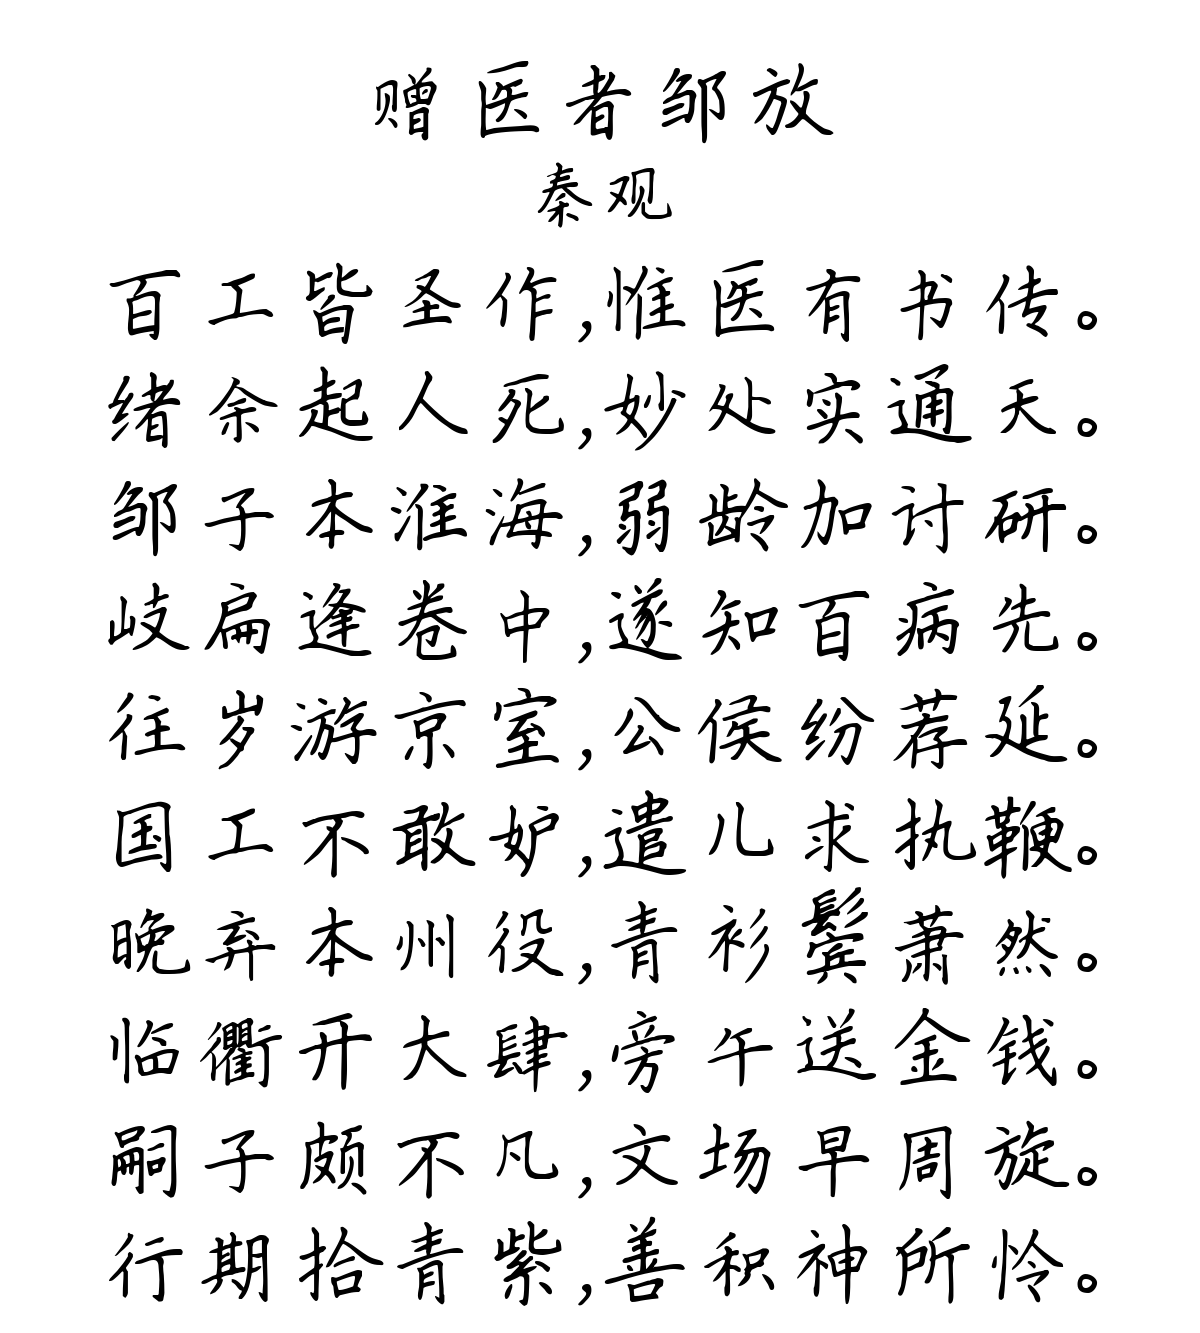 赠医者邹放
秦观
百工皆圣作,惟医有书传。
绪余起人死,妙处实通天。
邹子本淮海,弱龄加讨研。
岐扁逢卷中,遂知百病先。
往岁游京室,公侯纷荐延。
国工不敢妒,遣儿求执鞭。
晚弃本州役,青衫鬓萧然。
临衢开大肆,旁午送金钱。
嗣子颇不凡,文场早周旋。
行期拾青紫,善积神所怜。